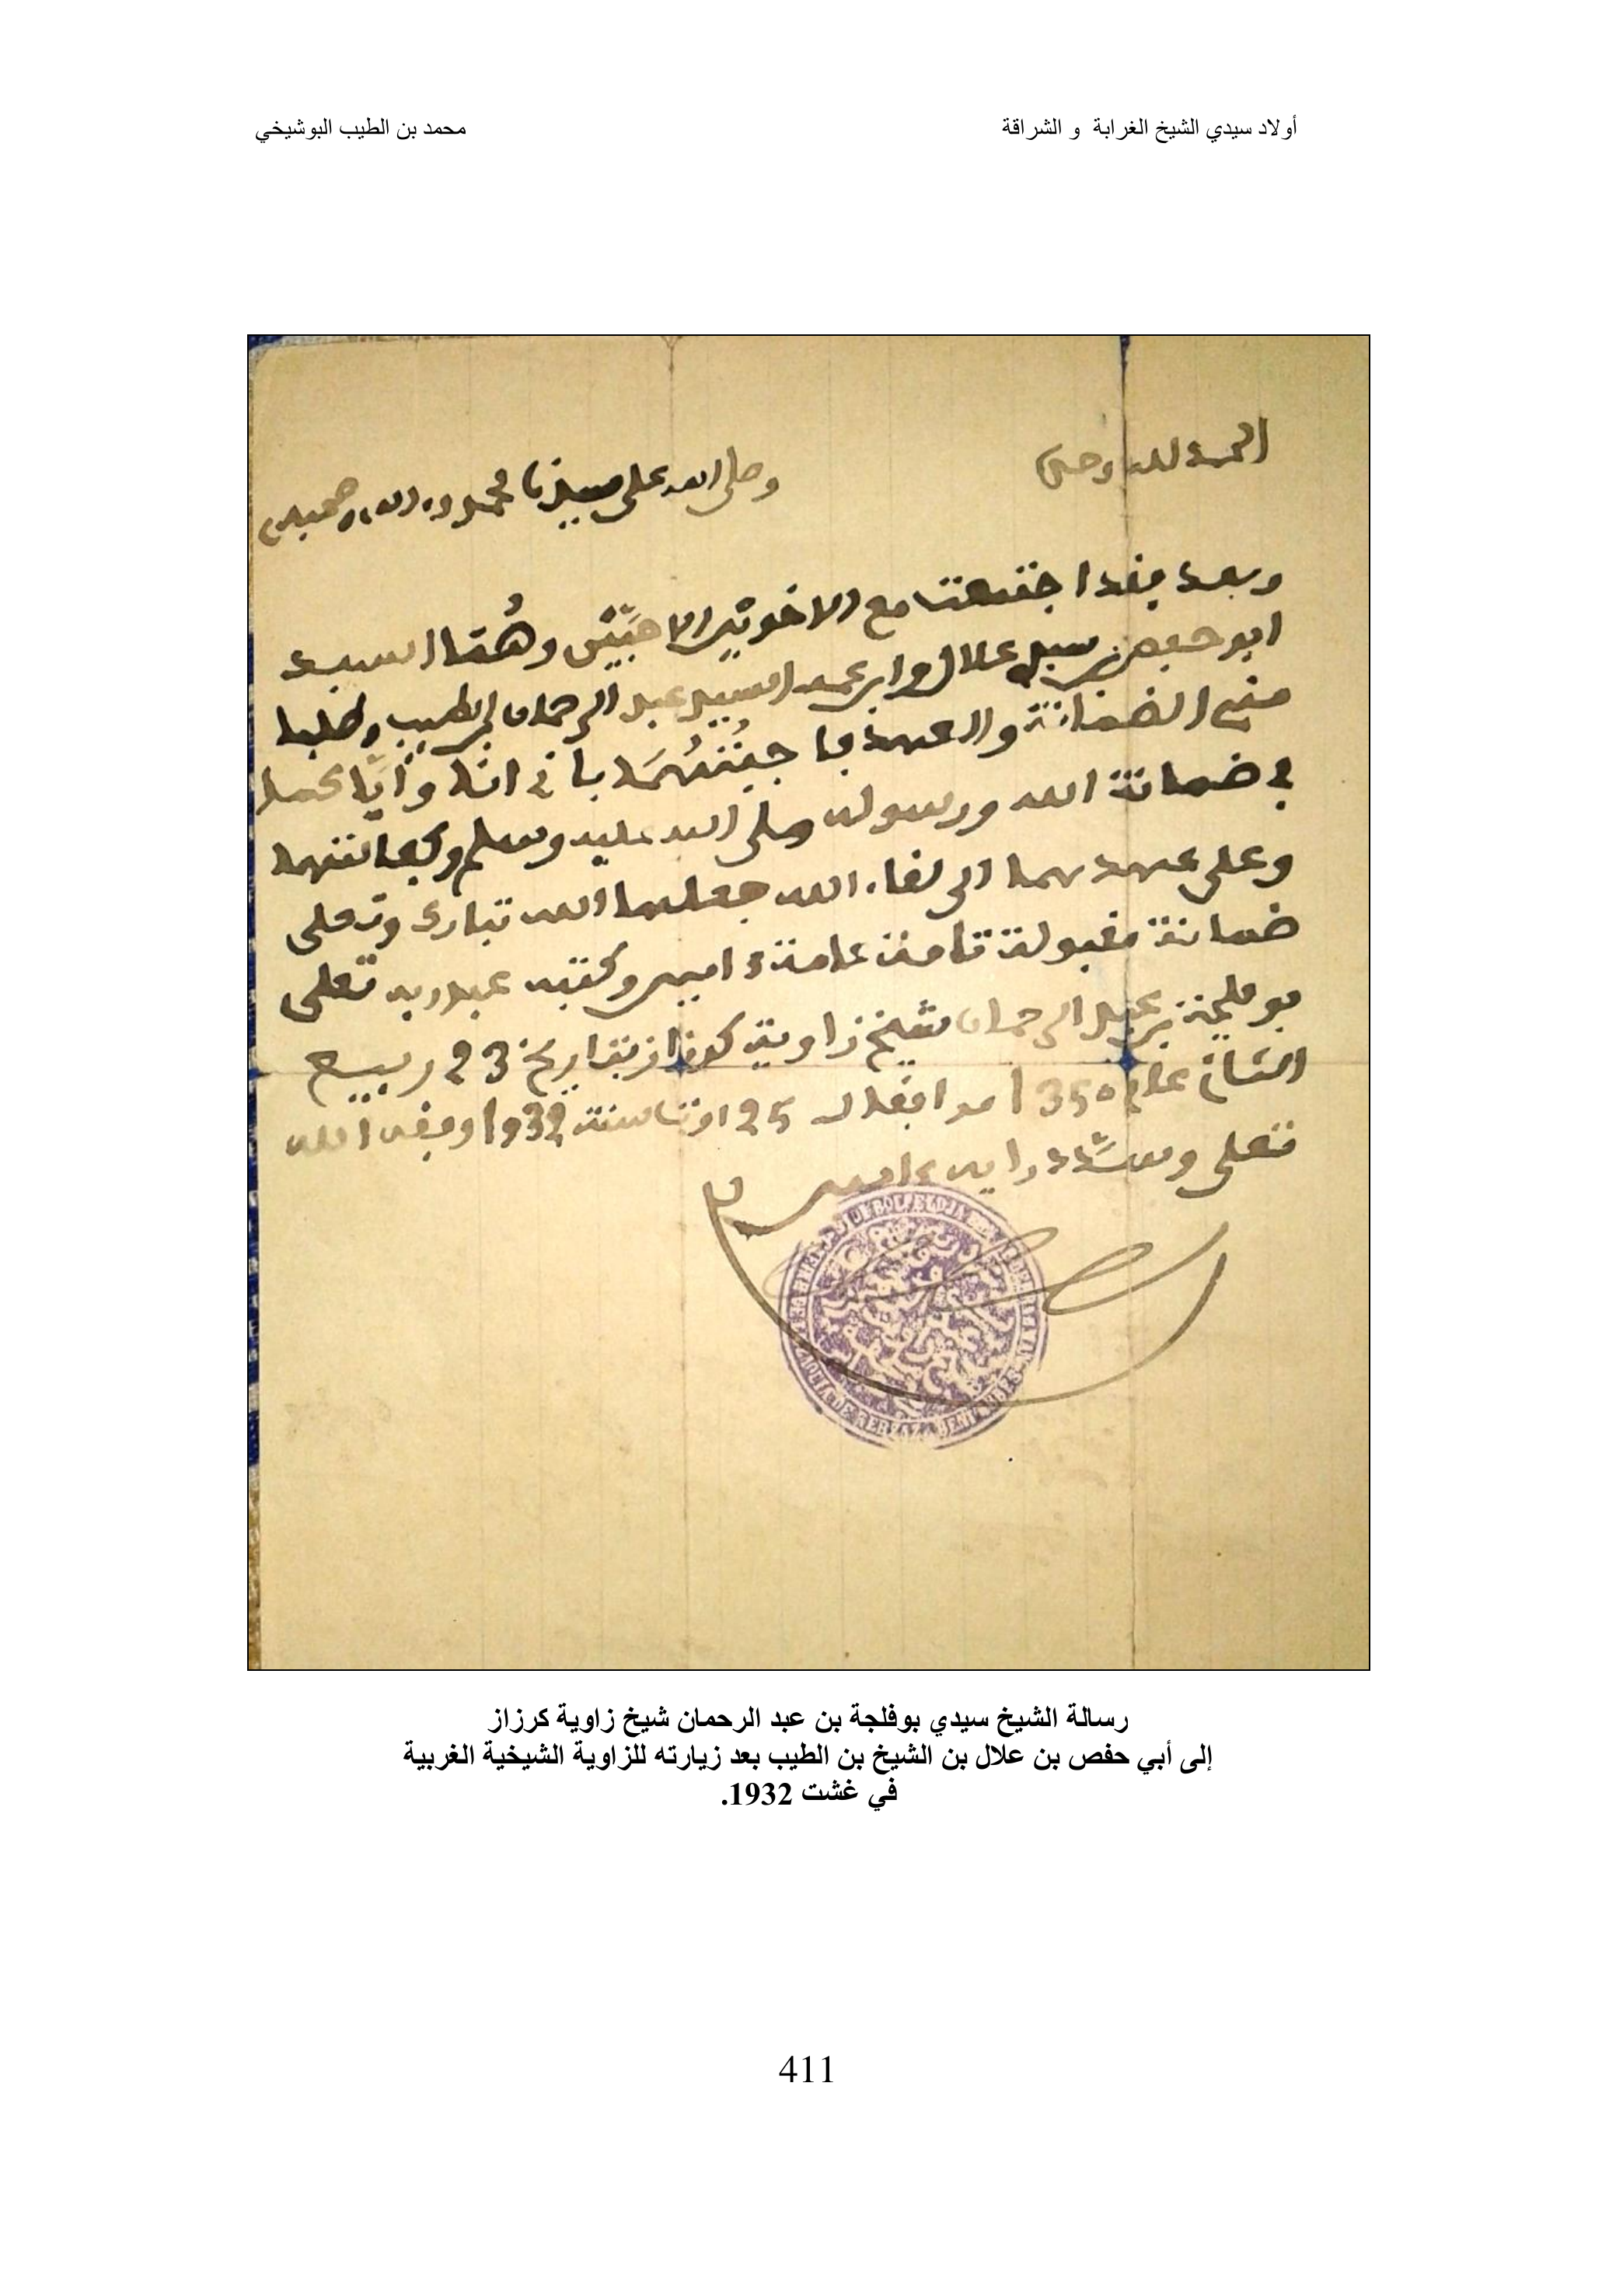 أولاد سيدي الشيخ الغرابة و الشراقة
محمد بن الطيب البوشيخي
الحمد لله وحده
وصلى الله على سيدنا محمد وءاله وصحبه
وبعد فقد اجتمعت مع الاخوين الاحبين وهما السيد
ابو حفص بن سيد علال وابن عمه السيد عبد الرحمان بن الطيب وطلبا
مني الضمانة والعهد فاجبتهما باني انا واياهما
في ضمانة الله ورسوله صلى الله عليه وسلم وكفالتهما
وعلى عهدهما الى لقاء الله جعلها الله تبارك وتعلى
ضمانة مقبولة تامة عامة ءامين وكتبه عبد ربه تعلى
بوفلجة بن عبد الرحمان شيخ زاوية كرزاز بتاريخ 23 ربيع
الثاني عام 1350 موافقا لـ 25 اوت سنة 1932 وفقه الله
تعلى وسدد رايه ءامين
ZAOUIA DE KERZAZ BENI ABBES
رسالة الشيخ سيدي بوفلجة بن عبد الرحمان شيخ زاوية كرزاز
إلى أبي حفص بن علال بن الشيخ بن الطيب بعد زيارته للزاوية الشيخية الغربية
في غشت 1932.
411